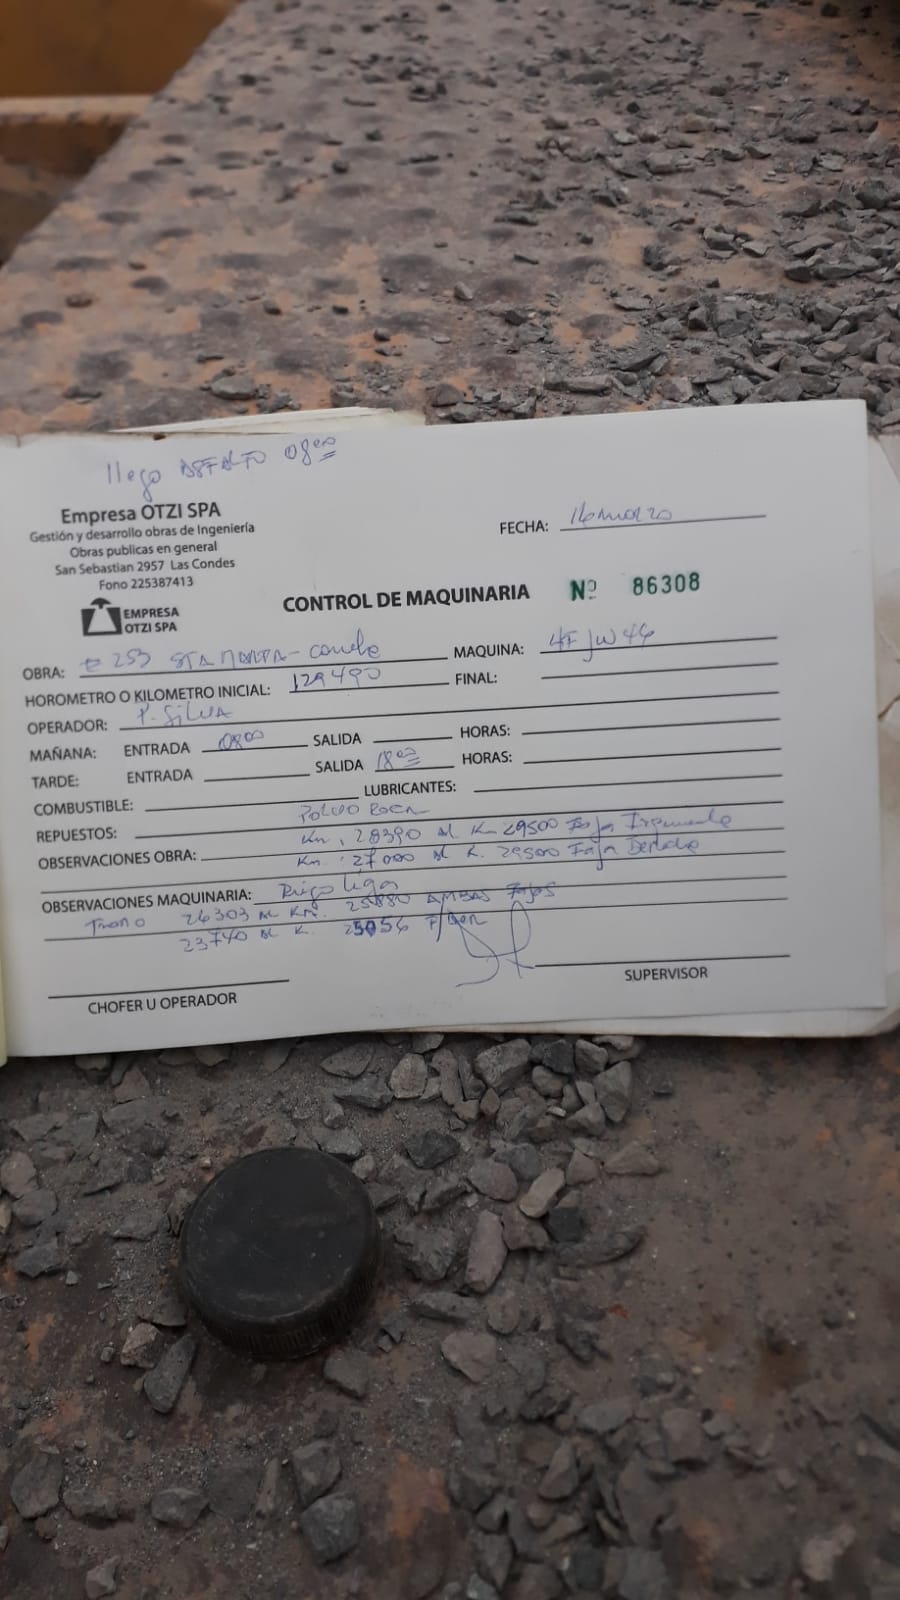 llego ASFALTO 08⁰⁰
Empresa OTZI SPA
Gestión y desarrollo obras de Ingeniería
Obras publicas en general
San Sebastian 2957 Las Condes
Fono 225387413
EMPRESA
OTZI SPA
FECHA: 16 marzo
CONTROL DE MAQUINARIA Nº 86308
OBRA: E 253 STA MARTA - MAQUINA: JW44
HOROMETRO O KILOMETRO INICIAL: 129490 FINAL:
OPERADOR: P. Silva
MAÑANA: ENTRADA 08⁰⁰ SALIDA HORAS:
TARDE: ENTRADA SALIDA 18⁰⁰ HORAS:
COMBUSTIBLE: LUBRICANTES:
REPUESTOS: Polvo Roca
OBSERVACIONES OBRA: Km. 28390 AL Km 29500 Faja Izquierda
Km. 27000 AL K. 29500 Faja Derecha
OBSERVACIONES MAQUINARIA: Riego Liga
Tramo 24303 AL Km. 25880 AMBAS FAJAS
23740 AL K. F/DER
CHOFER U OPERADOR
SUPERVISOR